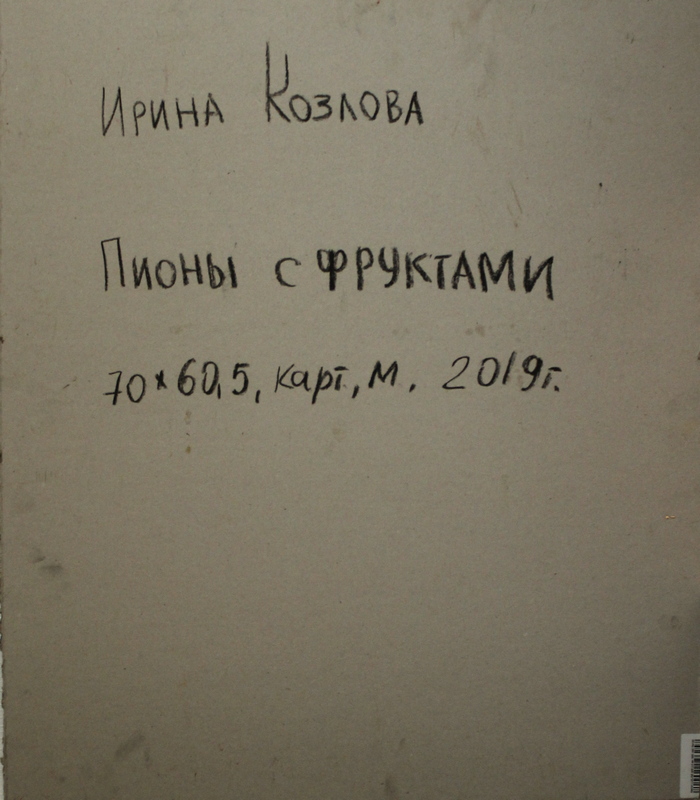 Ирина Козлова
Пионы с фруктами
70×60,5, карт., м. 2019г.